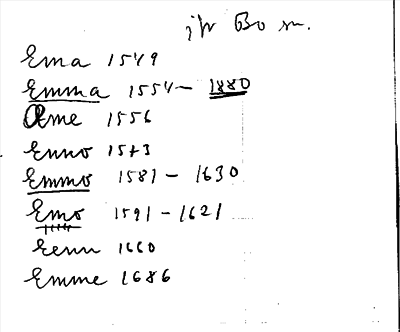 Ema 1549
Emma 1554 - 1880
Eme 1556
Enno 1573
Emmo 1581 - 1630
Emo 1591 - 1621
1660
Emme 1686